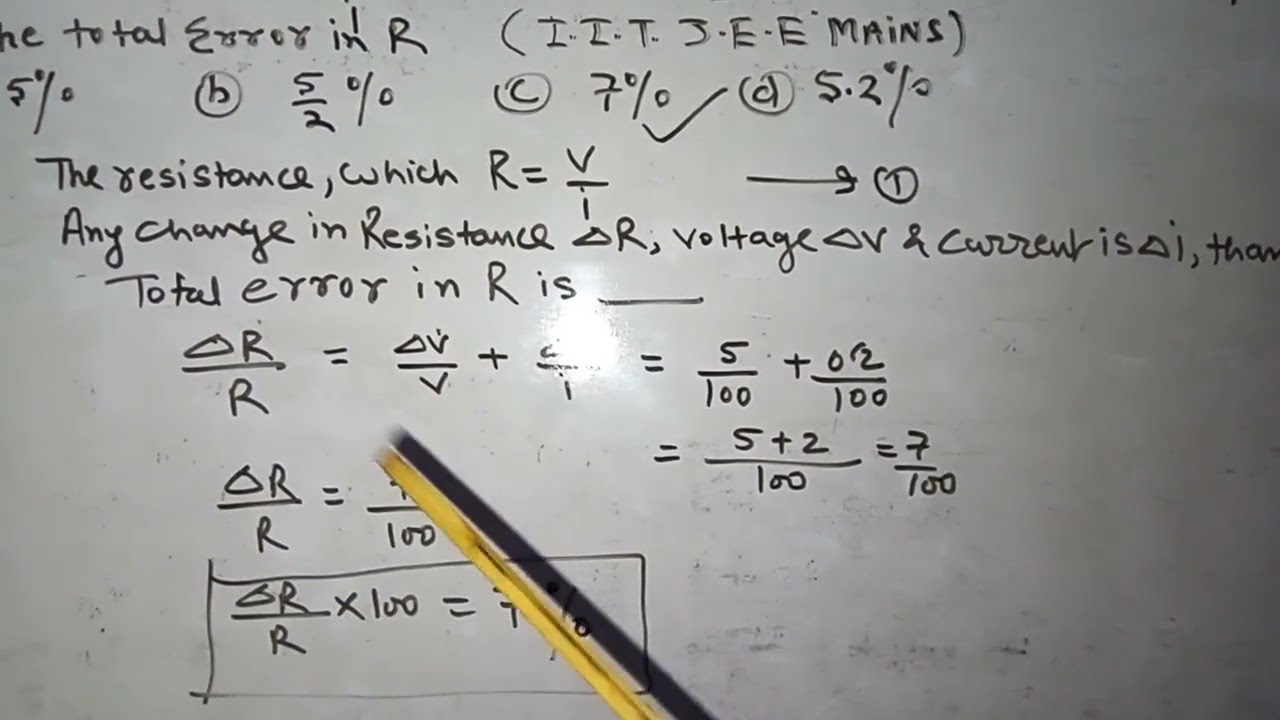 he total Error in R (I.I.T. J.E.E MAINS)
5% (b) 5/2 % (c) 7% ✓ (d) 5.2%
The resistance, which R = V/i → (1)
Any change in Resistance ΔR, voltage ΔV & current is Δi, than
Total error in R is ____
ΔR/R = ΔV/V + /i = 5/100 + 02/100
= 5+2/100 = 7/100
ΔR/R = /100
ΔR/R × 100 = 7%